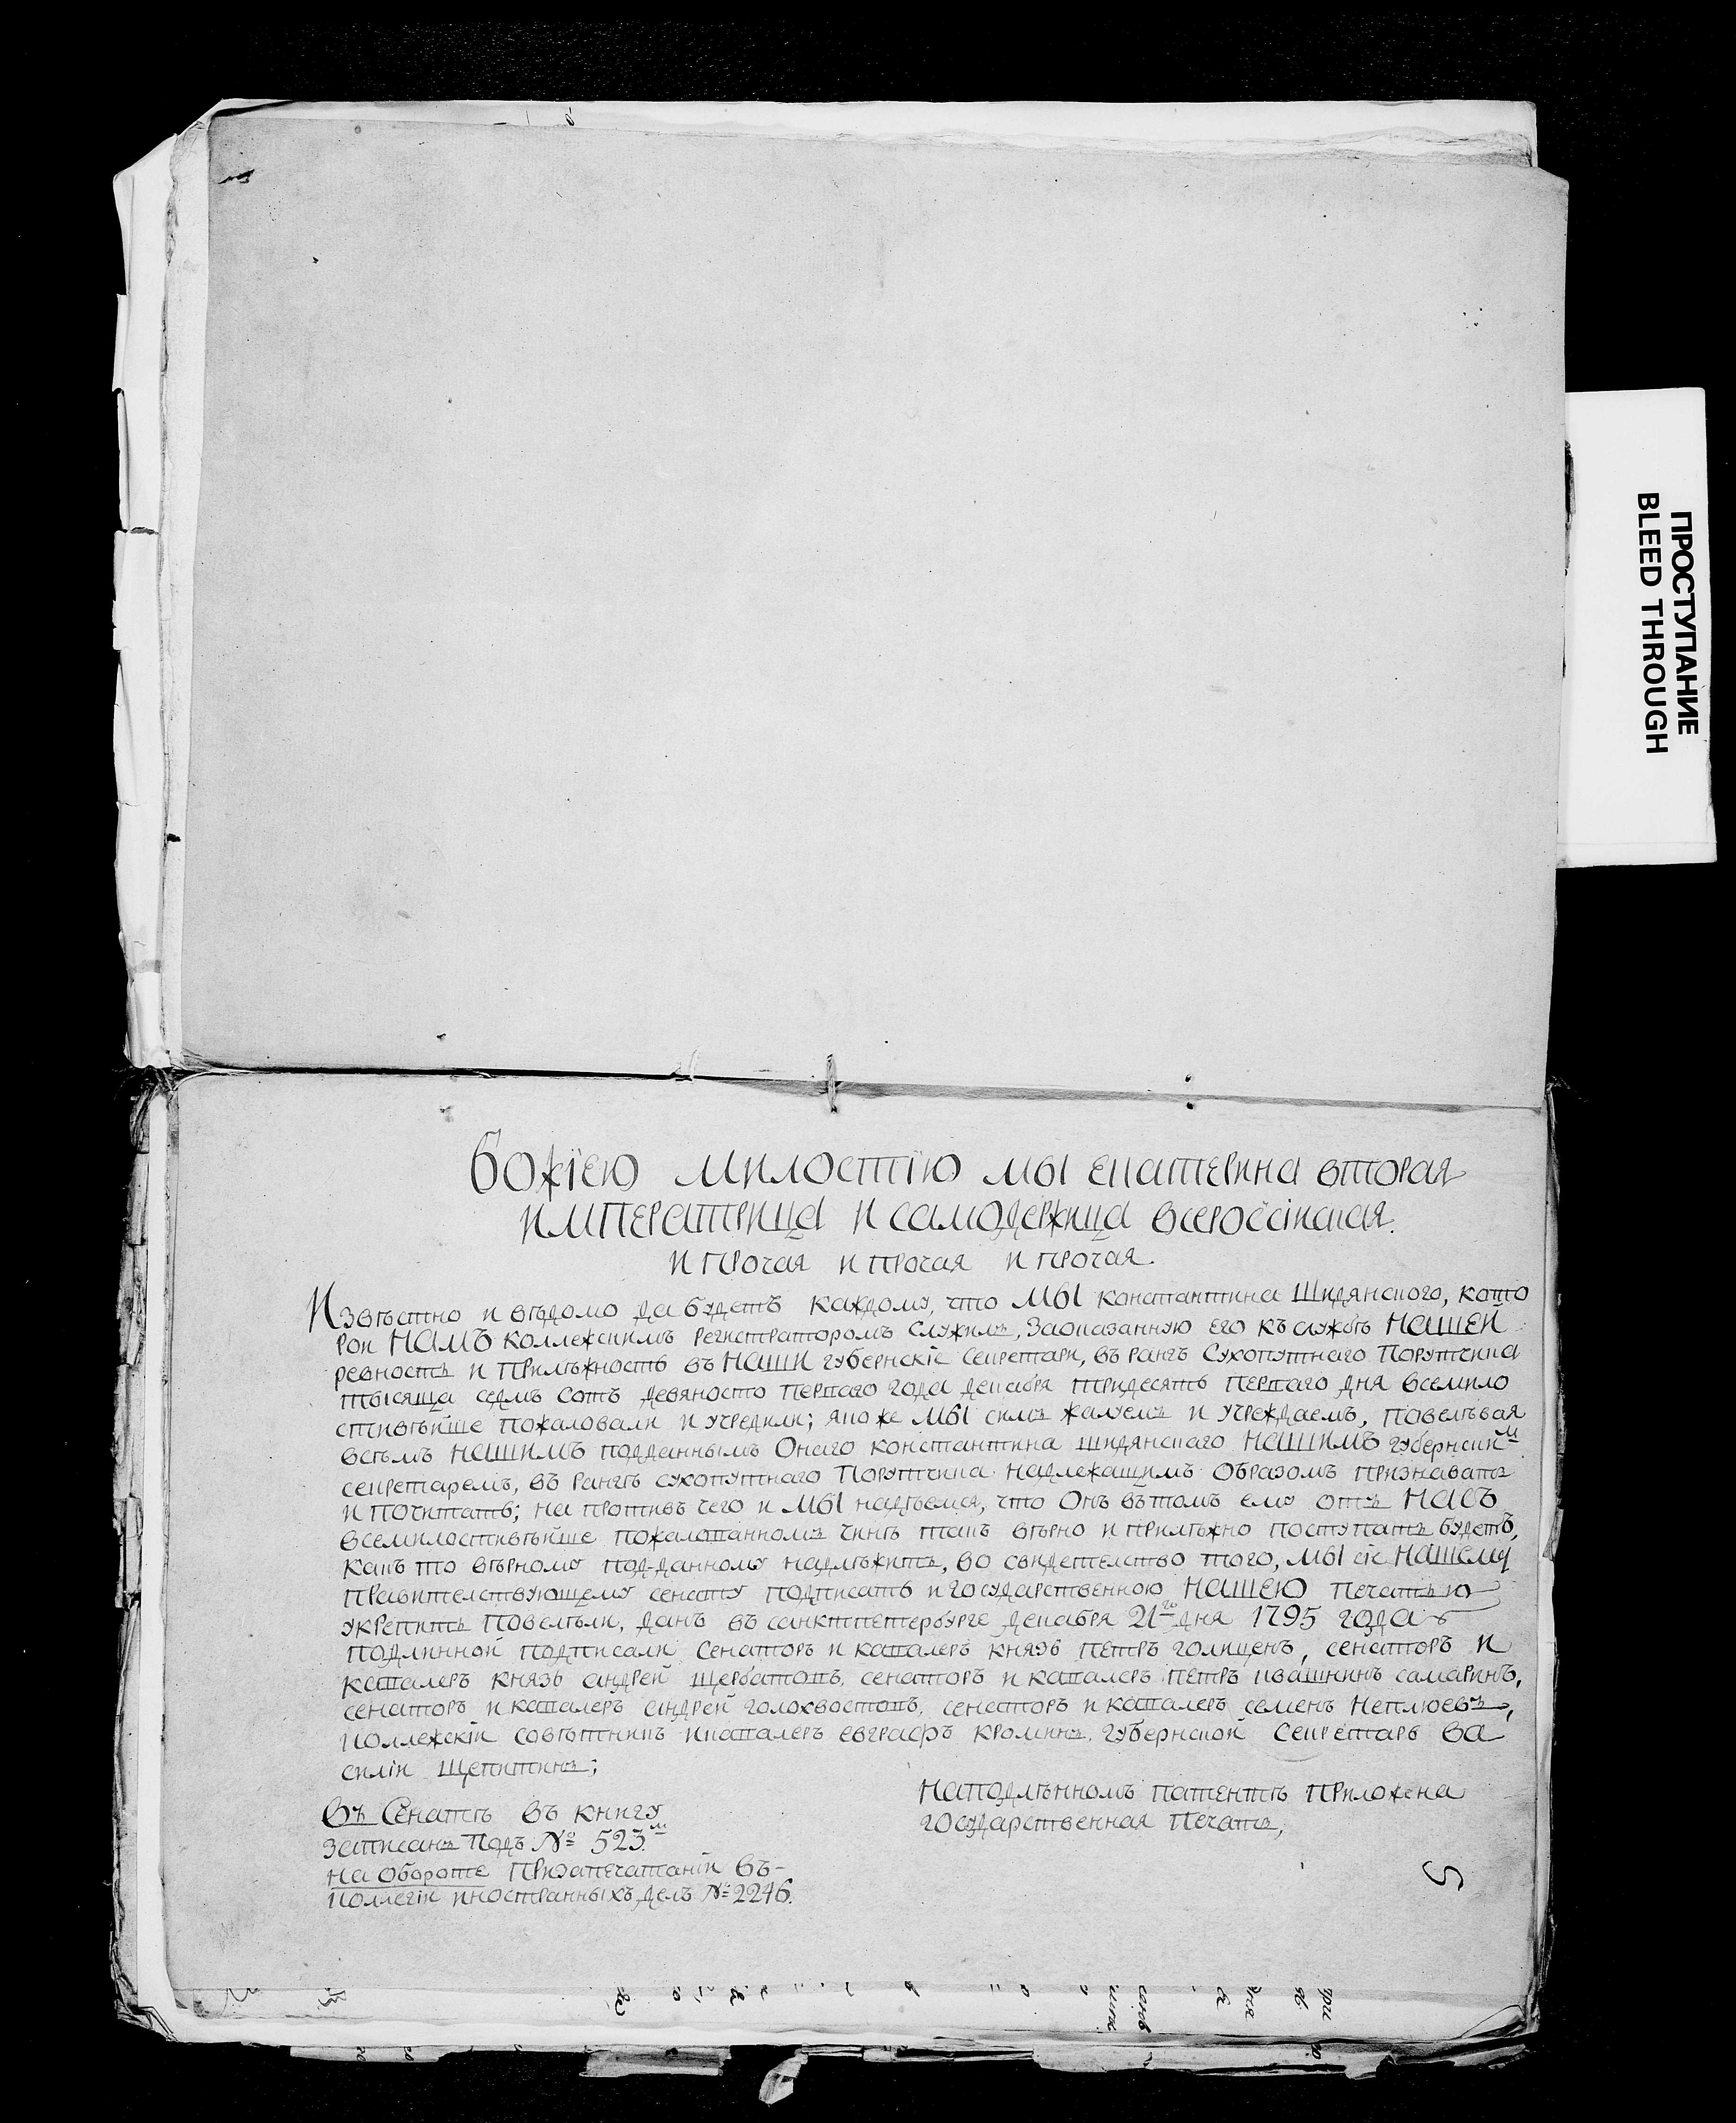 ПРОСТУПАНИЕ
BLEED THROUGH
Божіею милостїю мы екатерина вторая
императрица и самодержица всероссіиская.
и прочая и прочая и прочая.
Извѣстно и вѣдомо да будетъ каждому, что МЫ константина Шидянского, кото
рои НАМЪ коллежскимъ регистраторомъ служилъ, Заоказанную его къ службѣ НАШЕЙ
ревность и Прилѣжность въ НАШИ губернскїе Секретари, въ рангъ Сухопутнаго Порутчика
тысяща седмъ сотъ девяносто перваго года декабря тридесять перваго дня всемило
стивѣйше пожаловали и учредили; яко же МЫ симъ жалуемъ и учреждаемъ, повелѣвая
всѣмъ НАШИМЪ подданнымъ Онаго константина шидянскаго НАШИМЪ губернским
секретаремъ, въ рангѣ сухопутнаго Порутчика надлежащимъ Образомъ признавать
и почитать; на противъ чего и МЫ надѣемся, что Онъ вътомъ ему отъ НАСЪ
всемилостивѣйше пожалованномъ чинѣ такъ вѣрно и прилѣжно поступать будетъ,
какъ то вѣрному под-данному надлѣжитъ, во свидетелство того, МЫ сіе НАШему
Правителствующему сенату подписать и государственною НАШЕЮ Печатью
укрепить Повелѣли, данъ въ санктпетербурге декабря 21го дня 1795 года
подлинной подписали Сенаторъ и кавалеръ князь петръ голиценъ, сенаторъ и
кавалеръ князь андрей щербатовъ, сенаторъ и кавалеръ петръ ивашкинъ самаринъ,
сенаторъ и кавалеръ андрей голохвостовъ, сенаторъ и кавалеръ семенъ Неплюевъ,
коллежскіи совѣтникъ икавалеръ евграфъ кроминъ, губернской Секретарь ва
силіи щепитинъ;
Въ Сенатѣ въ книгу
записанъ Подъ № 523.м
на обороте Призапечатаніи въ-
коллегіи иностранныхъ делъ № 2246.
Наподлѣнномъ патентѣ приложена
государственная Печать,